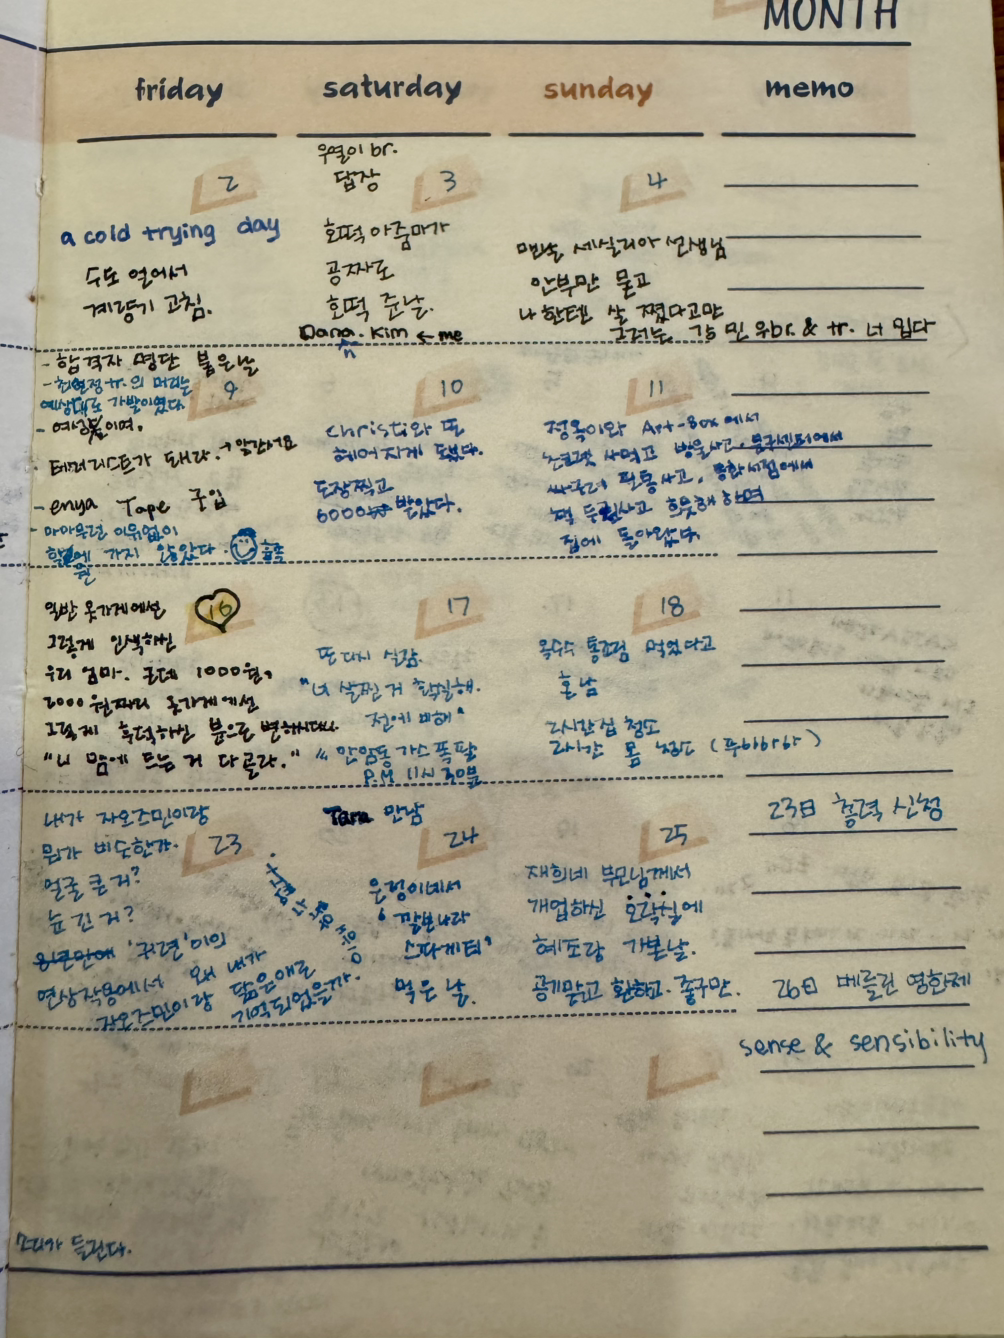 MONTH
friday saturday sunday memo
2
a cold trying day
수도 얼어서
계량기 고침.
우열이 br.
답장 3
호떡 아줌마가
공짜로
호떡 준 날.
Dana. Kim ← me
n
4
맨날 세실리아 선생님
안부만 묻고
나한텐 살 쪘다고만
그러는 강민우br. & tr. 너 밉다
- 합격자 명단 붙은 날
tr.의 머리는 9
예상대로 가발이었다
- 여성불이며,
테러리스트가 돼라.
- enya Tape 구입
- 아마 이유없이
가지 않았다
10
Christi와 또
헤어지게 됐다.
도장찍고
6000 받았다.
11
정옥이와 Art-Box에서
사먹고 방울사고, 문구센터에서
싸구려 필통사고, 동화서점에서
책 두권사고 흐뭇해 하며
집에 돌아왔다.
일반 옷가게에선 16
그렇게 인색하신
우리 엄마. 근데 1000원,
2000원짜리 옷가게에선
그렇게 후덕하신 분으로 변하시다니
"니 맘에 드는 거 다 골라."
17
또다시 실감.
"너 살찐 거 확실해.
전에 비해"
안암동 가스폭팔
P.M 11시 30분
18
옥수수 통조림 먹었다고
혼남
2시간 집 청소
2시간 몸 청소 (푸하하하)
내가 자오즈민이랑
뭐가 비슷한가. 23
얼굴 큰 거?
눈 긴 거?
'귀련'이의
연상작용에서 왜 내가
자오즈민이랑 닮은애로
기억되었을까.
Tara 만남
24
은정이네서
'깔보나라
스파게티'
먹은 날.
25
재희네 부모님께서
개업하신 오락실에
혜조랑 가본날.
공기맑고 환하고. 좋구만.
23日 청력 신청
26日 베를린 영화제
sense & sensibility
소리가 들린다.